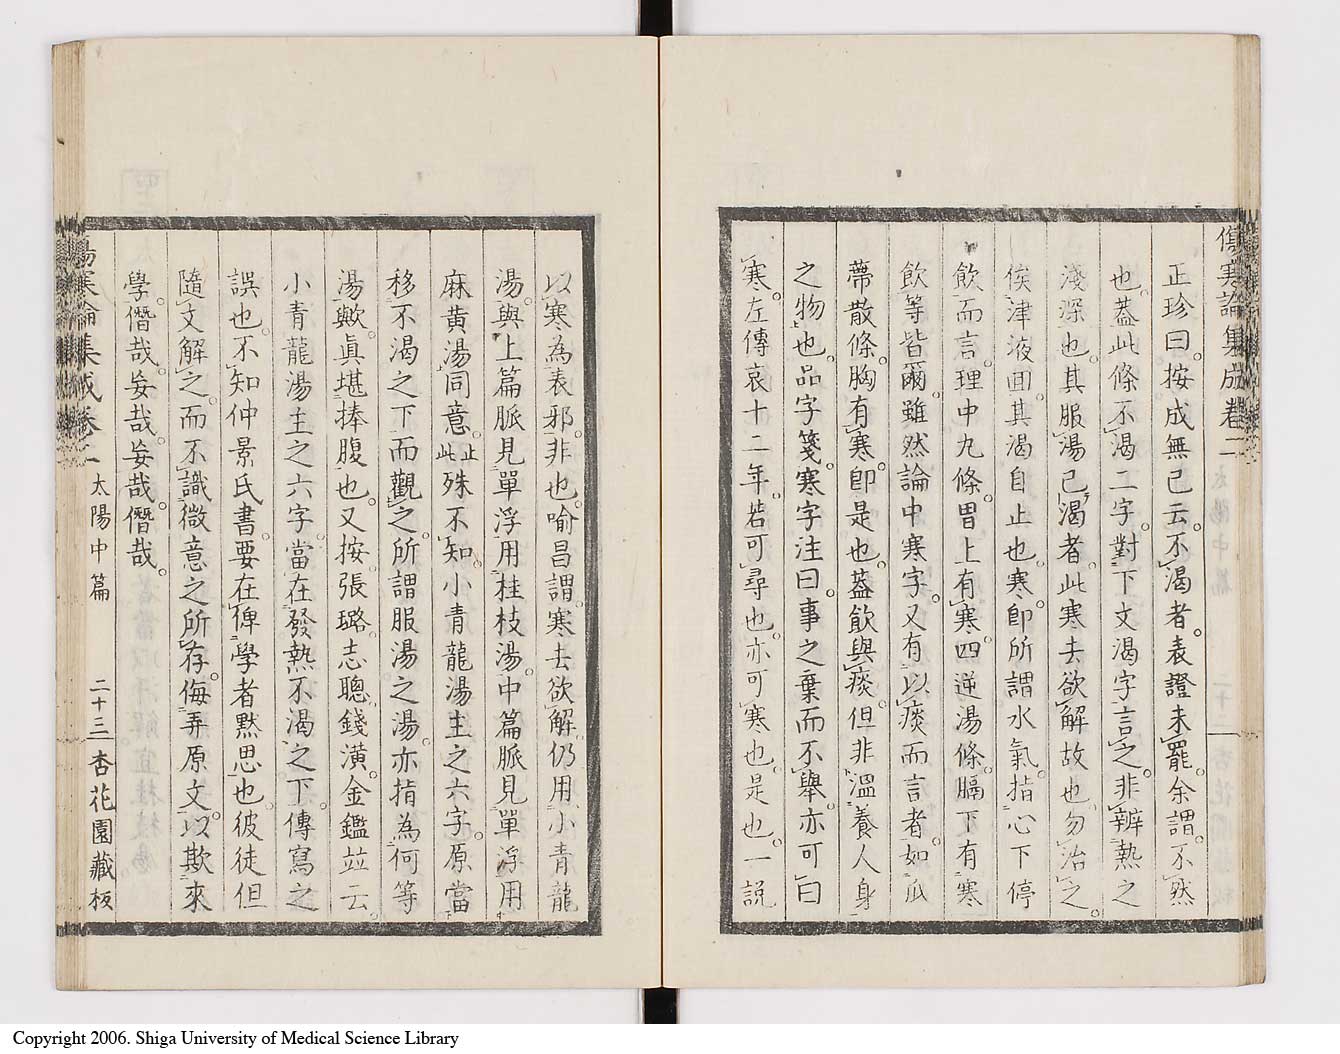 傷寒論集成卷二
正珍曰。按成無己云。不渴者。表證未罷。余謂。不然
也。蓋此條不渴二字。對下文渴字言之。非辨熱之
淺深也。其服湯已渴者。此寒去欲解故也。勿治之。
俟津液回。其渴自止也。寒卽所謂水氣。指心下停
飲而言。理中九條。胃上有寒。四逆湯條。膈下有寒
飲等皆爾。雖然論中寒字。又有以痰而言者。如瓜
蔕散條。胸有寒。卽是也。蓋飲與痰。但非溫養人身
之物也。品字箋。寒字注曰。事之棄而不擧。亦可曰
寒。左傳哀十二年。若可尋也。亦可寒也。是也。一説
以寒為表邪。非也。喻昌謂。寒去欲解。仍用小青龍
湯。與上篇脈見單浮。用桂枝湯。中篇脈見單浮。用
麻黄湯同意。止此 殊不知。小青龍湯主之六字。原當
移不渴之下而觀之。所謂服湯之湯。亦指為何等
湯歟。眞堪捧腹也。又按張璐志聰錢潢金鑑竝云。
小青龍湯主之六字。當在發熱不渴之下。傳寫之
誤也。不知仲景氏書。要在俾學者默思也。彼徒但
隨文解之。而不識微意之所存。侮弄原文。以欺來
學。僭哉。妄哉。妄哉。僭哉。
傷寒論集成卷二 太陽中篇 二十三 杏花園藏板
Copyright 2006. Shiga University of Medical Science Library